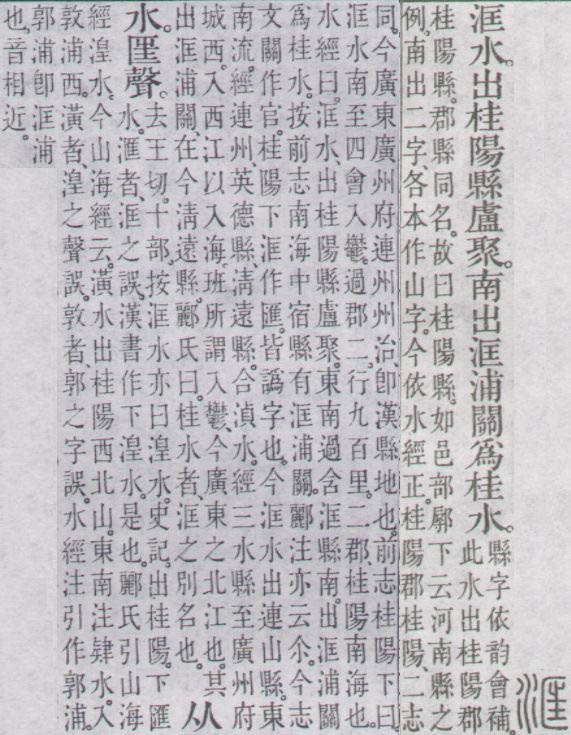 洭
洭水。出桂陽縣盧聚。南出洭浦關爲桂水。縣字依韵會補。
此水出桂陽郡
桂陽縣。郡縣同名。故曰桂陽縣。如邑部鄏下云河南縣之
例。南出二字、各本作山字。今依水經正。桂陽郡桂陽、二志
同。今廣東廣州府連州州治、卽漢縣地也。前志桂陽下曰。
洭水南至四會入鬱。過郡二。行九百里。二郡、桂陽南海也。
水經曰。洭水、出桂陽縣盧聚。東南過含洭縣。南出洭浦關
爲桂水。按前志南海中宿縣有洭浦關。酈注亦云尒。今志
文關作官。桂陽下洭作匯。皆譌字也。今洭水出連山縣。東
南流。經連州英德縣、淸遠縣。合湞水。經三水縣至廣州府
城西。入西江以入海。班所謂入鬱、今廣東之北江也。其
出洭浦關、在今淸遠縣。酈氏曰。桂水者、洭之別名也。
从
水匡聲。去王切。十部。按洭水亦曰湟水。史記。出桂陽。下匯
水。滙者、洭之誤。漢書作下湟水。是也。酈氏引山海
經湟水。今山海經云。潢水出桂陽西北山。東南注肄水。入
敦浦西。潢者、湟之聲誤。敦者、郭之字誤。水經注引作郭浦。
郭浦卽洭浦
也。音相近。